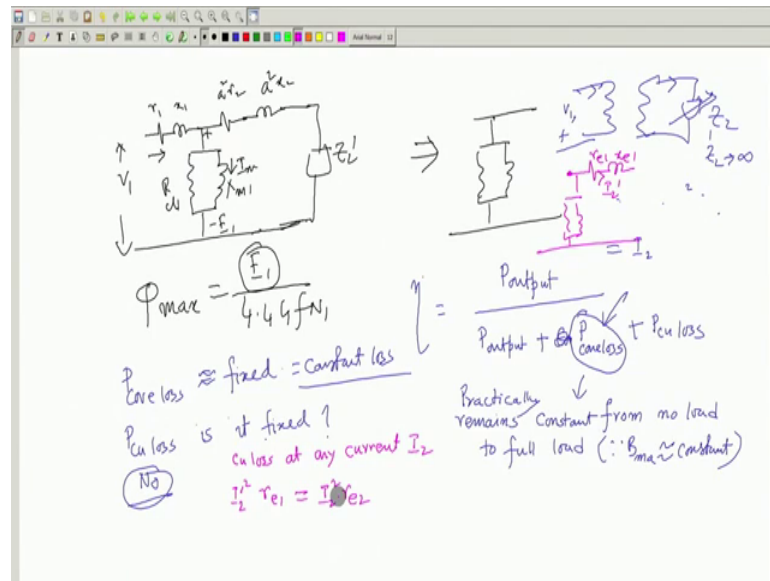 Arial Normal 12
r₁ x₁ a²r₂ a²x₂
V₁
I_m
X_m1
Z₂'
⇒
-E₁
V₁
Z₂
Z₂→∞
r_e1 x_e1
I₂'
= I₂
φ_max = E₁ / 4.44fN₁
η = P_output / P_output + P_core loss + P_cu loss
P_core loss ≈ fixed = constant loss
P_cu loss is it fixed?
No
cu loss at any current I₂
I₂'² r_e1 = I₂² r_e2
Practically
remains constant from no load
to full load (∵ B_max ≈ constant)